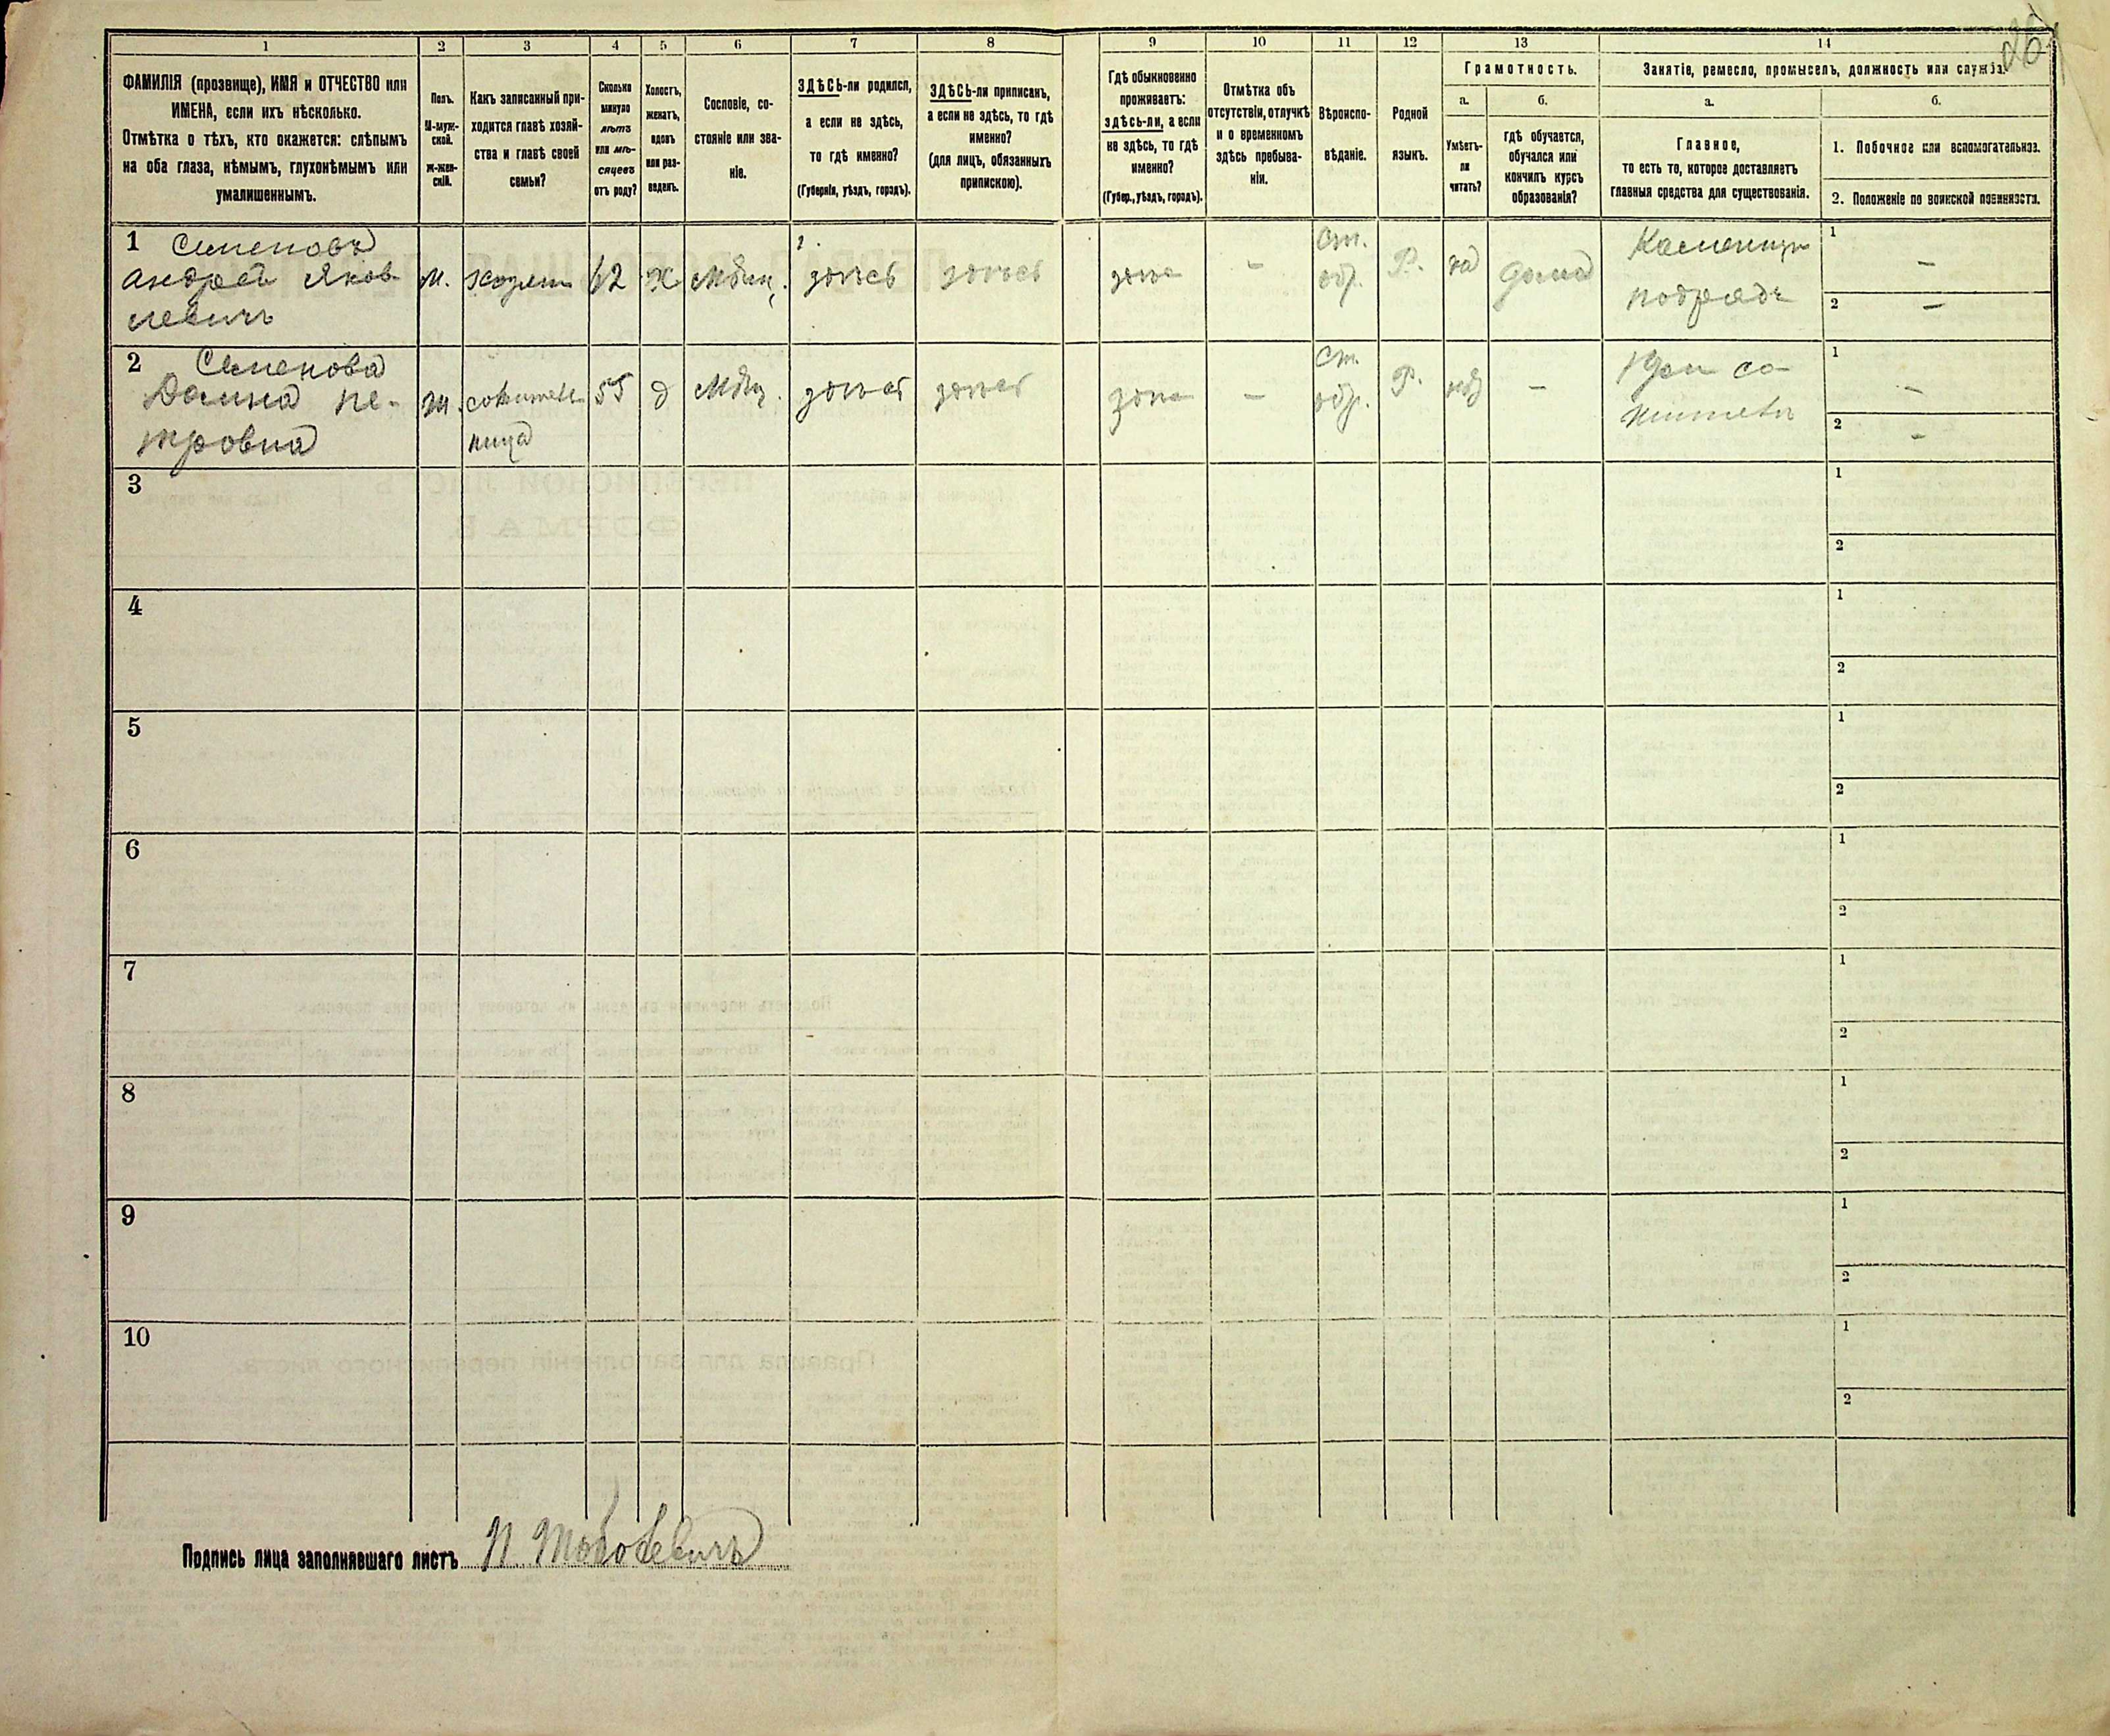 1
2
3
4
5
6
7
8
9
10
11
12
13
14
ФАМИЛІЯ (прозвище), ИМЯ и ОТЧЕСТВО или
ИМЕНА, если ихъ нѣсколько.
Отмѣтка о тѣхъ, кто окажется: слѣпымъ
на оба глаза, нѣмымъ, глухонѣмымъ или
умалишеннымъ.
Полъ.
М-муж-
ской.
ж-жен-
скій.
Какъ записанный при-
ходится главѣ хозяй-
ства и главѣ своей
семьи?
Сколько
минуло
лѣтъ
или мѣ-
сяцевъ
отъ роду?
Холостъ,
женатъ,
вдовъ
или раз-
веденъ.
Сословіе, со-
стояніе или зва-
ніе.
ЗДѢСЬ-ли родился,
а если не здѣсь,
то гдѣ именно?
(Губернія, уѣздъ, городъ).
ЗДѢСЬ-ли приписанъ,
а если не здѣсь, то гдѣ
именно?
(для лицъ, обязанныхъ
припискою).
Гдѣ обыкновенно
проживаетъ:
здѣсь-ли, а если
не здѣсь, то гдѣ
именно?
(Губер., уѣздъ, городъ).
Отмѣтка объ
отсутствіи, отлучкѣ
и о временномъ
здѣсь пребыва-
ніи.
Вѣроиспо-
вѣданіе.
Родной
языкъ.
Грамотность.
а.
Умѣетъ-
ли
читать?
б.
гдѣ обучается,
обучался или
кончилъ курсъ
образованія?
Занятіе, ремесло, промыселъ, должность или служба.
а.
Главное,
то есть то, которое доставляетъ
главныя средства для существованія.
б.
1. Побочное или вспомогательное.
2. Положеніе по воинской повинности.
1 Семеновъ
Андрей Яков
левичъ
м.
хозяин
62
х
Мѣщ.
здѣсь
здѣсь
здѣс
-
Ст.
обр.
Р.
да
дома
Каменщик
подрядч
1 -
2 -
2 Семенова
Домна Пе-
тровна
ж.
сожитель
ница
55
д
Мѣщ.
здѣсь
здѣсь
здѣс
-
Ст.
обр.
Р.
нѣт
-
При со-
жители
1 -
2 -
3
1
2
4
1
2
5
1
2
6
1
2
7
1
2
8
1
2
9
1
2
10
1
2
Подпись лица заполнявшаго листъ